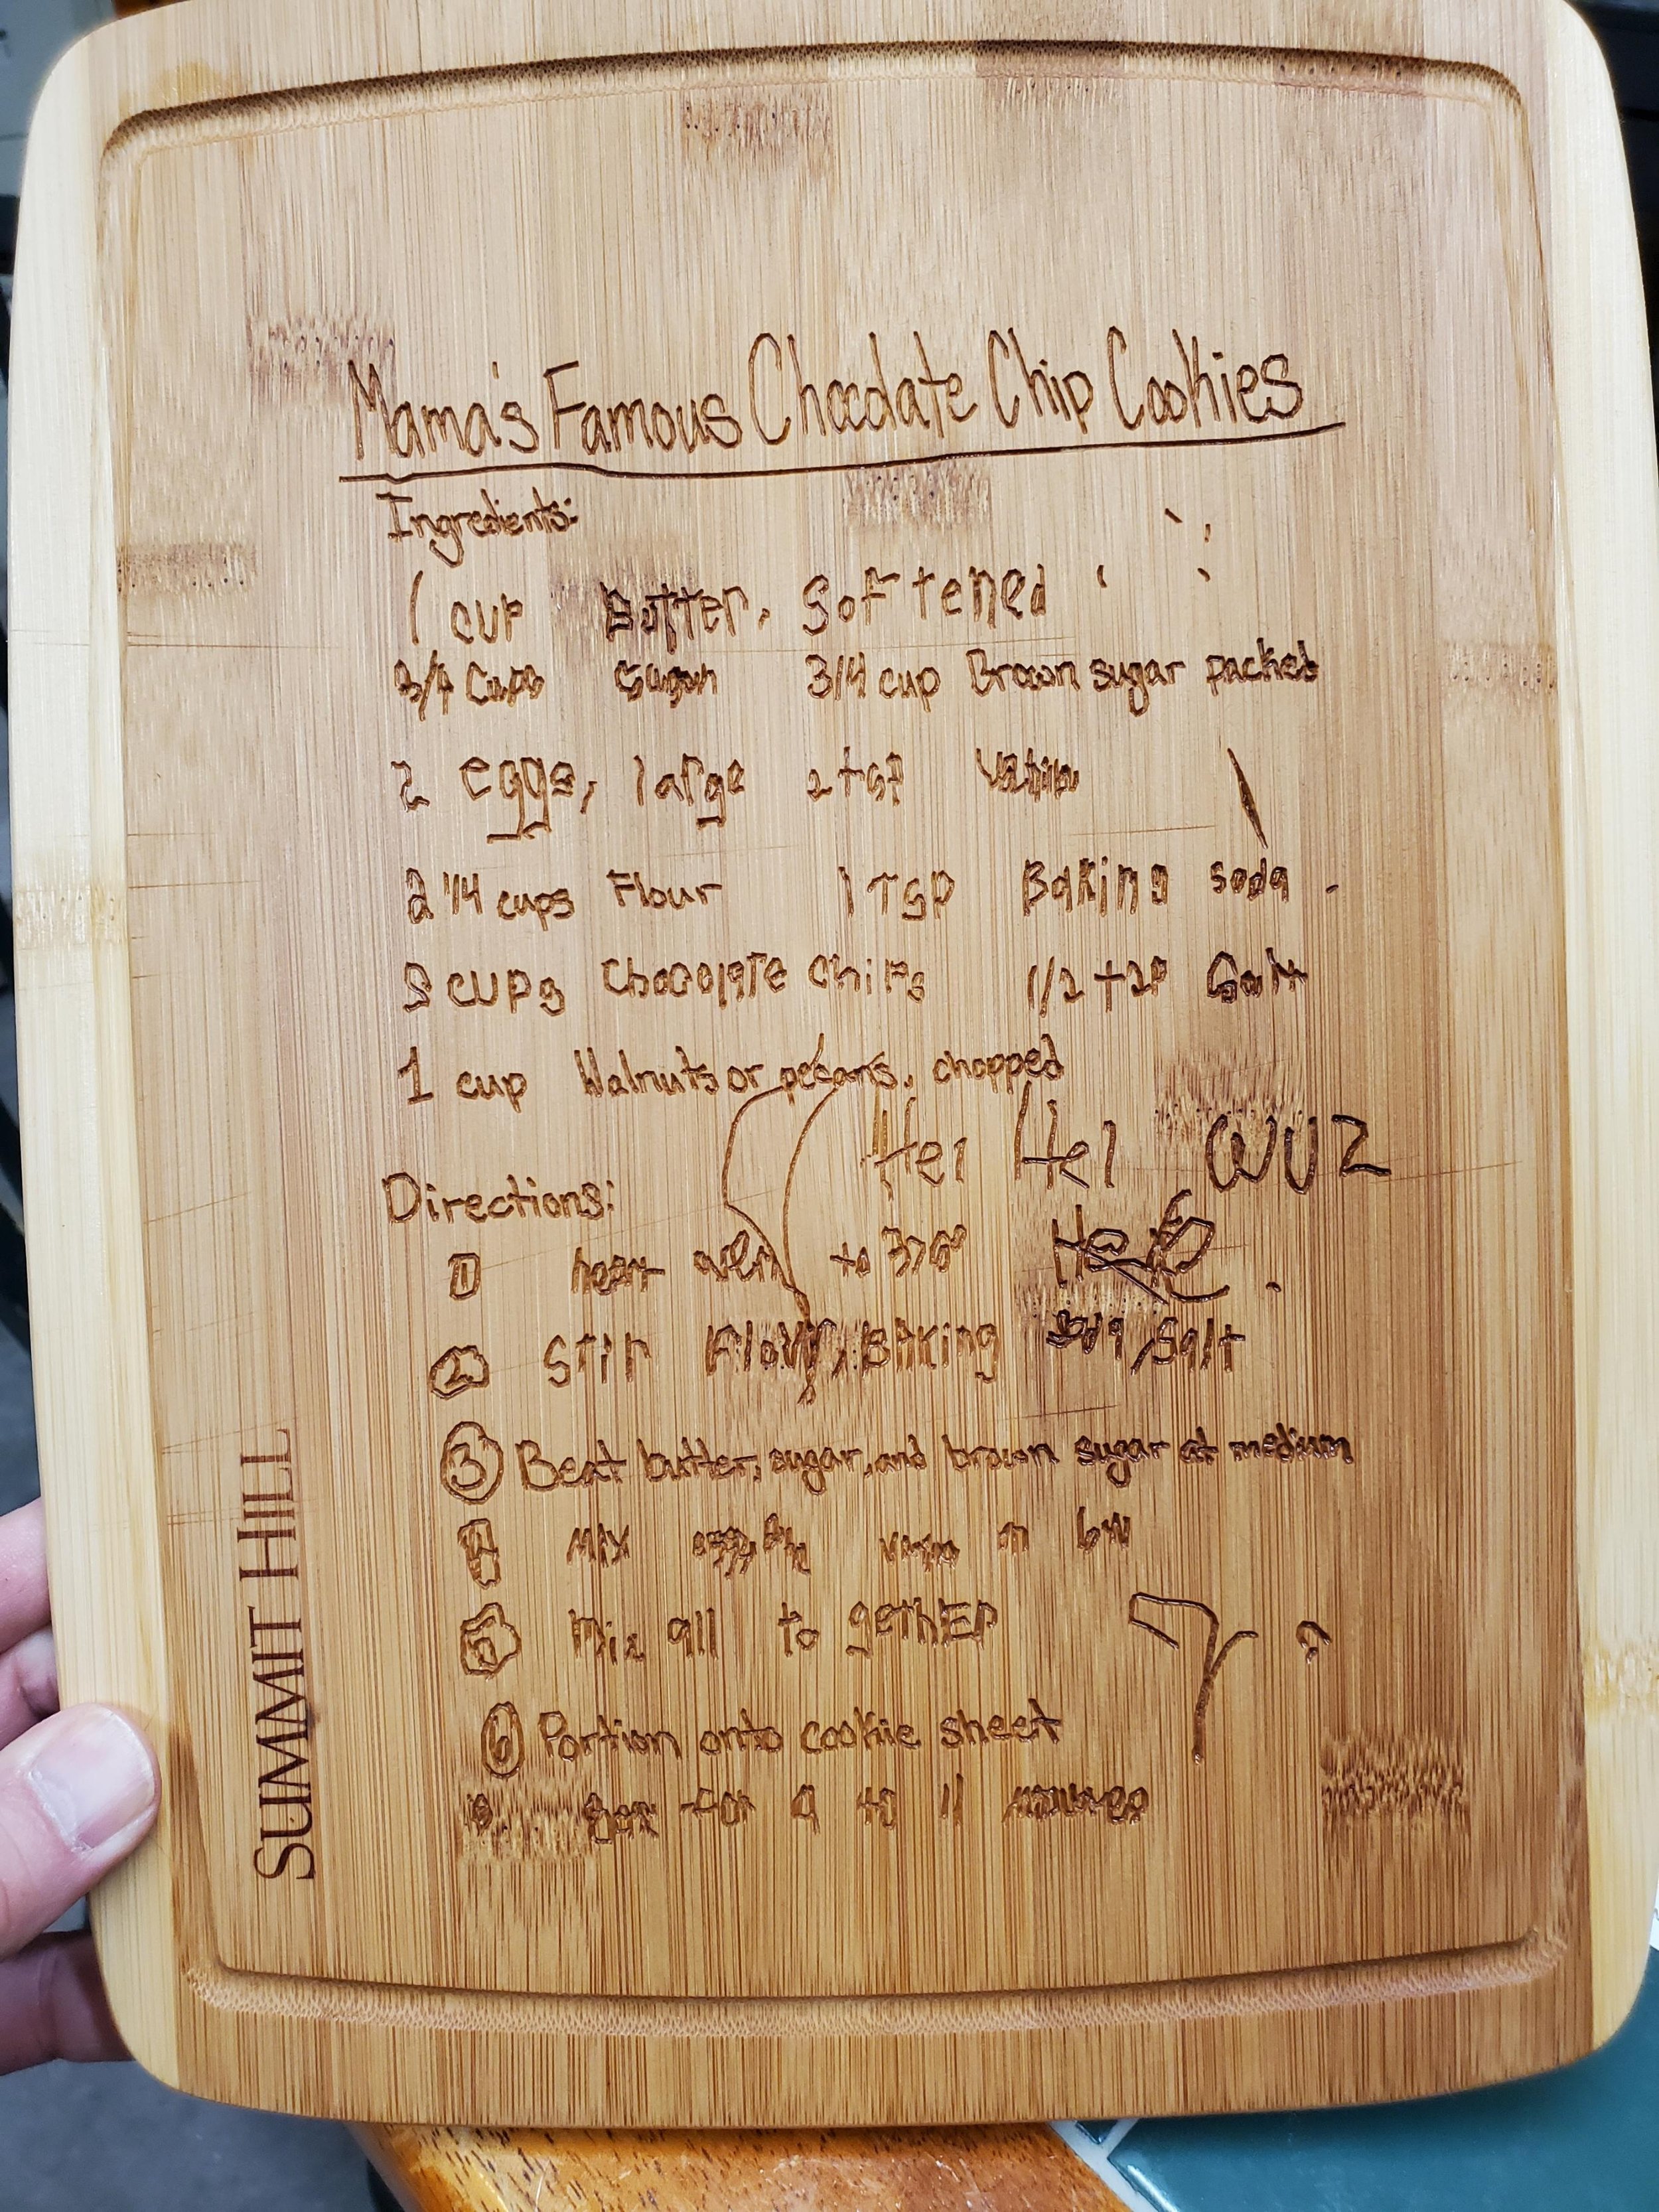 Mama's Famous Chocolate Chip Cookies
Ingredients:
1 cup Butter, Softened
3/4 Cups Sugar 3/4 cup Brown sugar packed
2 eggs, large 2 tsp
2 1/4 cups Flour 1 Tsp Baking soda
2 cups Chocolate Chips 1/2 tsp Salt
1 cup Walnuts or pecans, chopped
Hei Hei WUZ
Directions:
Here
1 heat oven to
2 Stir Flour, Baking Soda, Salt
3 Beat butter, sugar, and brown sugar at medium
4 Mix on low
5 Mix all to gethEr
6 Portion onto cookie sheet
for 9 to 11
SUMMIT HILL